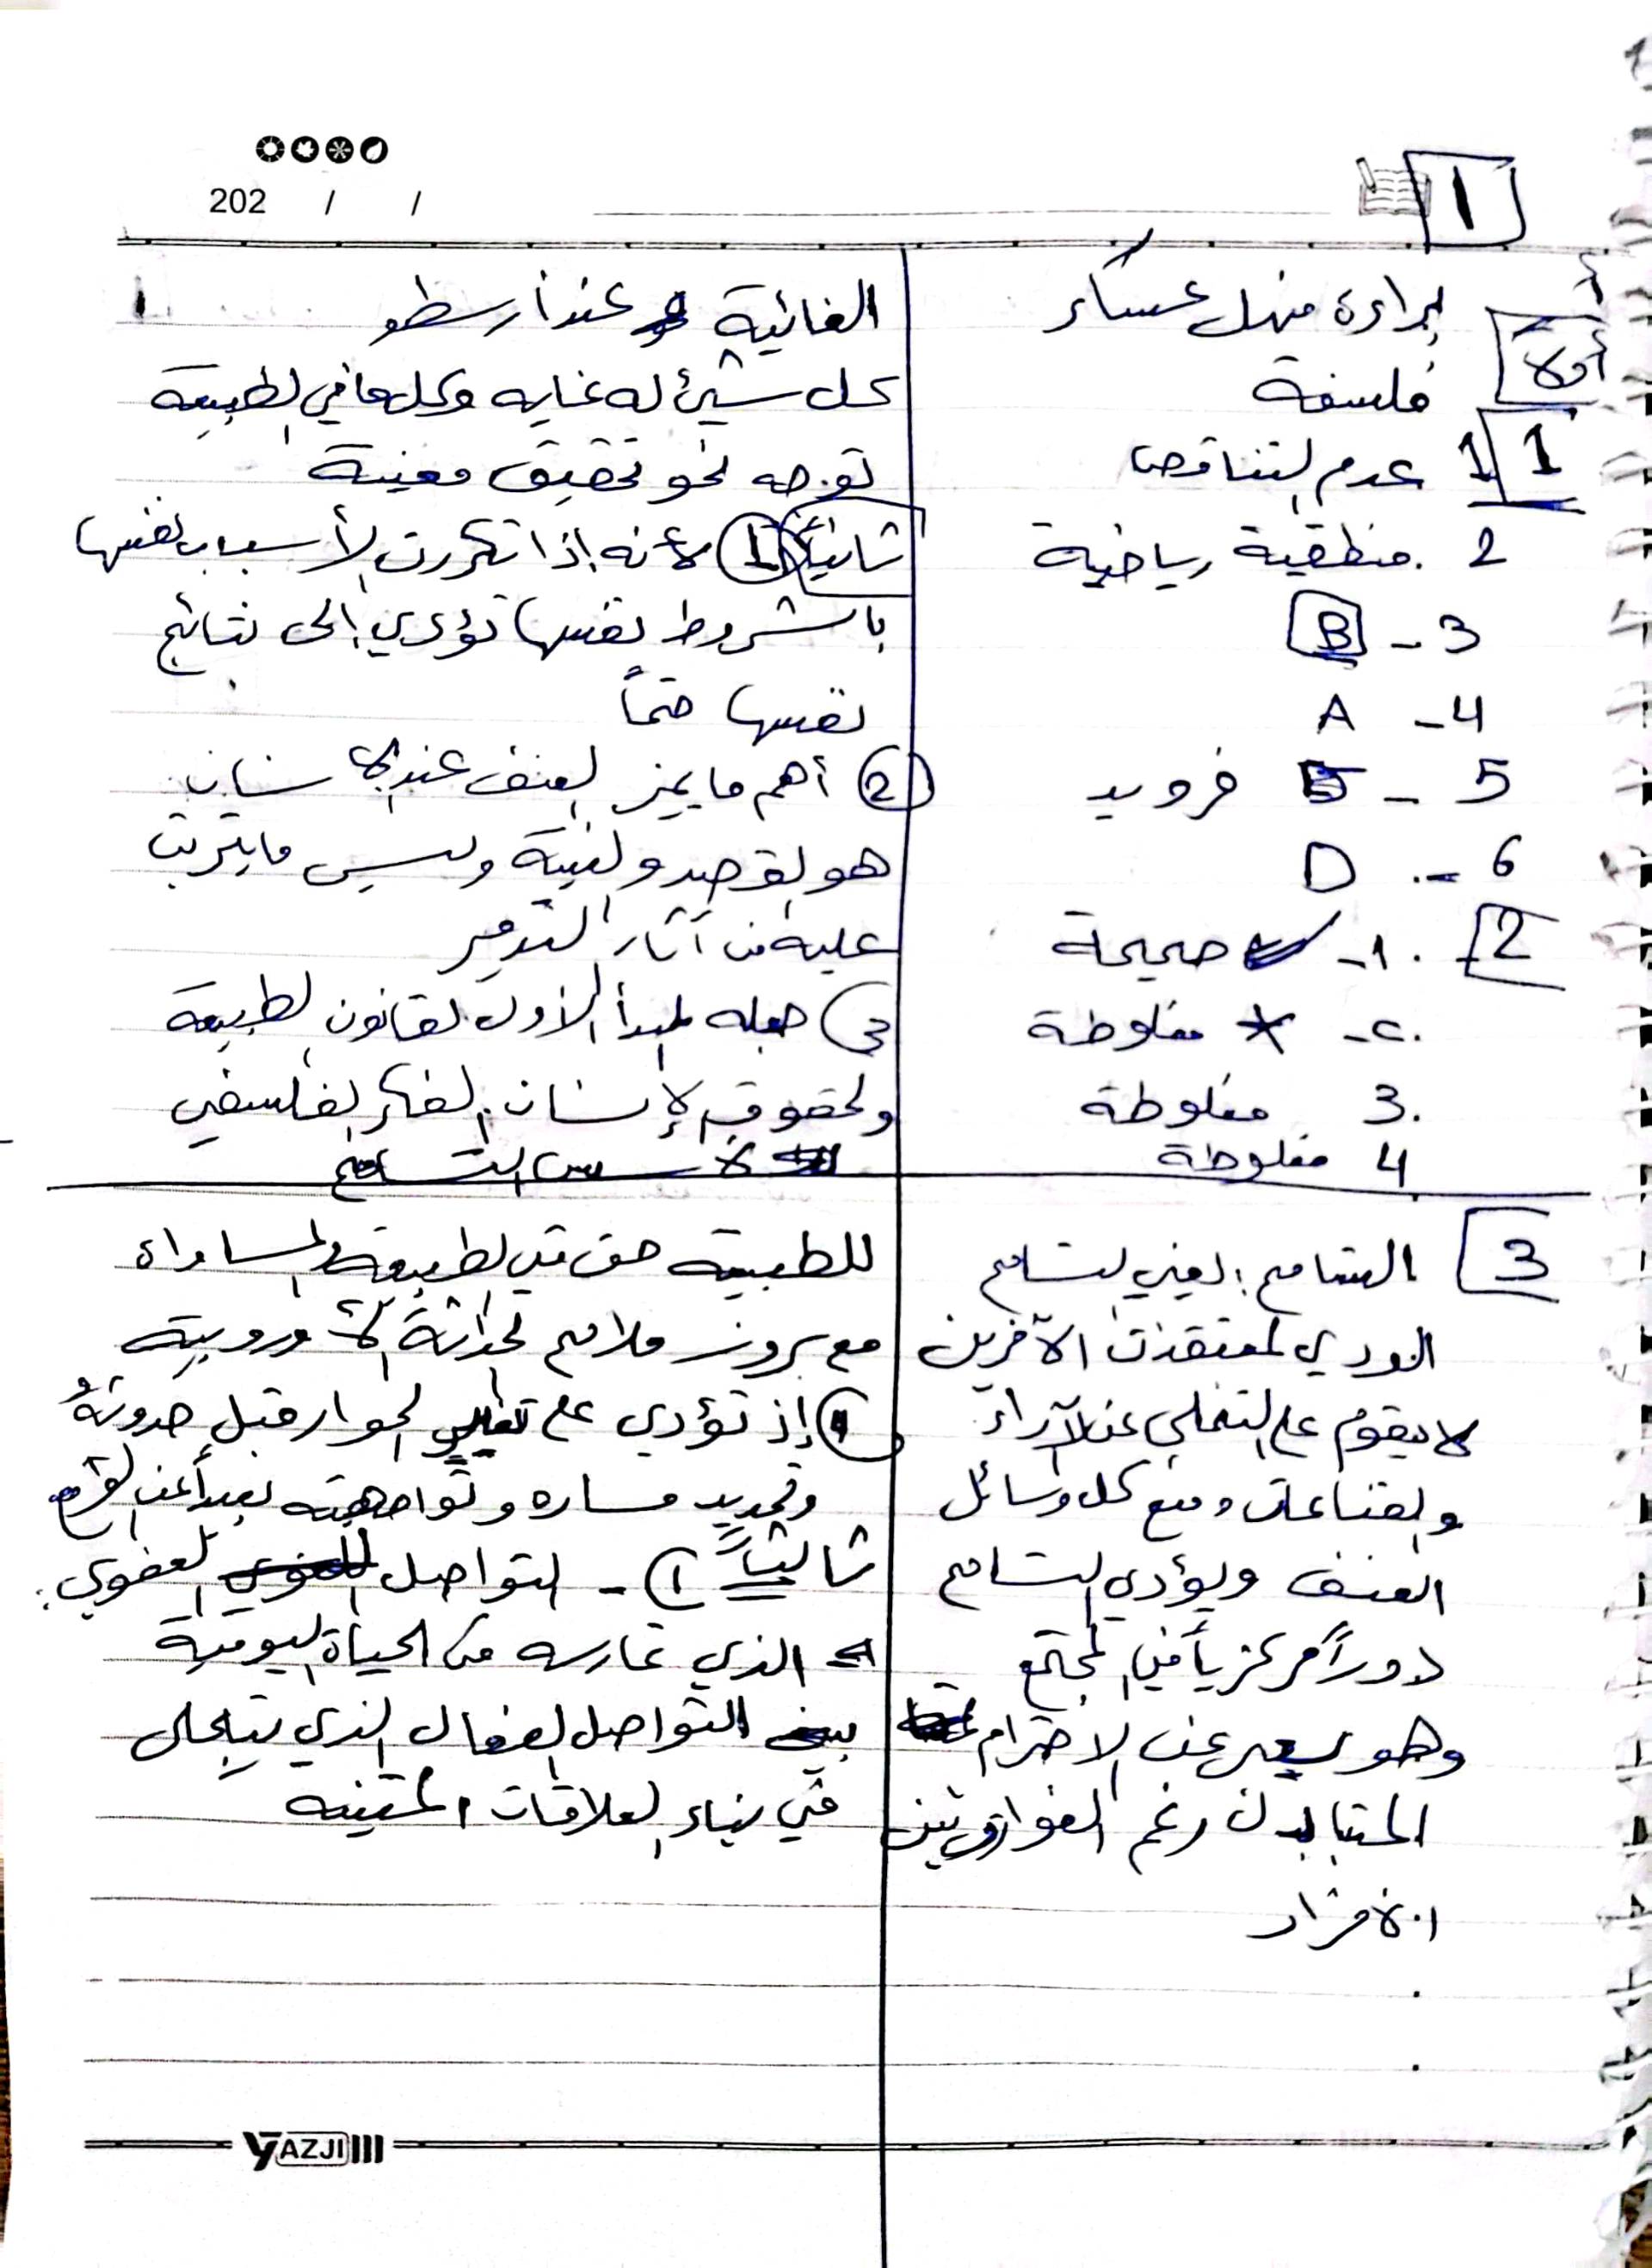 1
202 / /
براءة منهل عساكر
أولاً
فلسفة
1 1 عدم التناقض
2 . منطقية رياضية
3 - B
4 - A
5 - فرويد
6 - . D
2 - . 1 - صحيحة
. 2 - مغلوطة
. 3 مغلوطة
4 مغلوطة
الغائية عند أرسطو
كل شيئ له غايه وكل ما في الطبيعة
توجه نحو تحقيق معينة
ثانياً 1 لأنه إذا تكررت الأسباب نفسها
بالشروط نفسها تؤدي إلى نتائج
نفسها حتماً
2 أهم ما يميز العنف عند الإنسان
هو القصد والنية وليس ما يترتب
عليه من آثار التدمير
3 جعله المبدأ الأول لقانون الطبيعة
ولحقوق الإنسان. الفكر الفلسفي
لأسس التسامح
3 التسامح : يعني التسامح
الودي لمعتقدات الآخرين
لا يقوم على التخلي عن الآراء
والقناعات ومنع كل وسائل
العنف ويؤدي التسامح
دوراً مركزياً في المجتمع
وهو يعبر عن الاحترام
المتبادل رغم الفوارق بين
الأفراد
للطبيعة حق في الطبيعة والمساواة
مع بروز ملامح الحداثة الأوروبية
إذ تؤدي على الحوار قبل حدوثهُ
وتحديد مساره وتواجهته بعيداً عن
ثالثاً 1 - التواصل العفوي :
الذي نمارسه في الحياة اليومية
التواصل الفعال الذي يتجلى
في بناء العلاقات المتينه
YAZJI